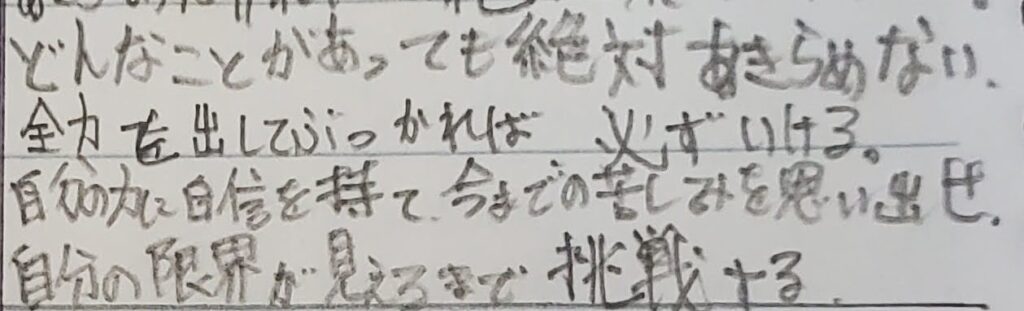 どんなことがあっても絶対あきらめない.
全力を出してぶつかれば 必ずいける。
自分の力に自信を持て.今までの苦しみを思い出せ.
自分の限界が見えるまで 挑戦する.